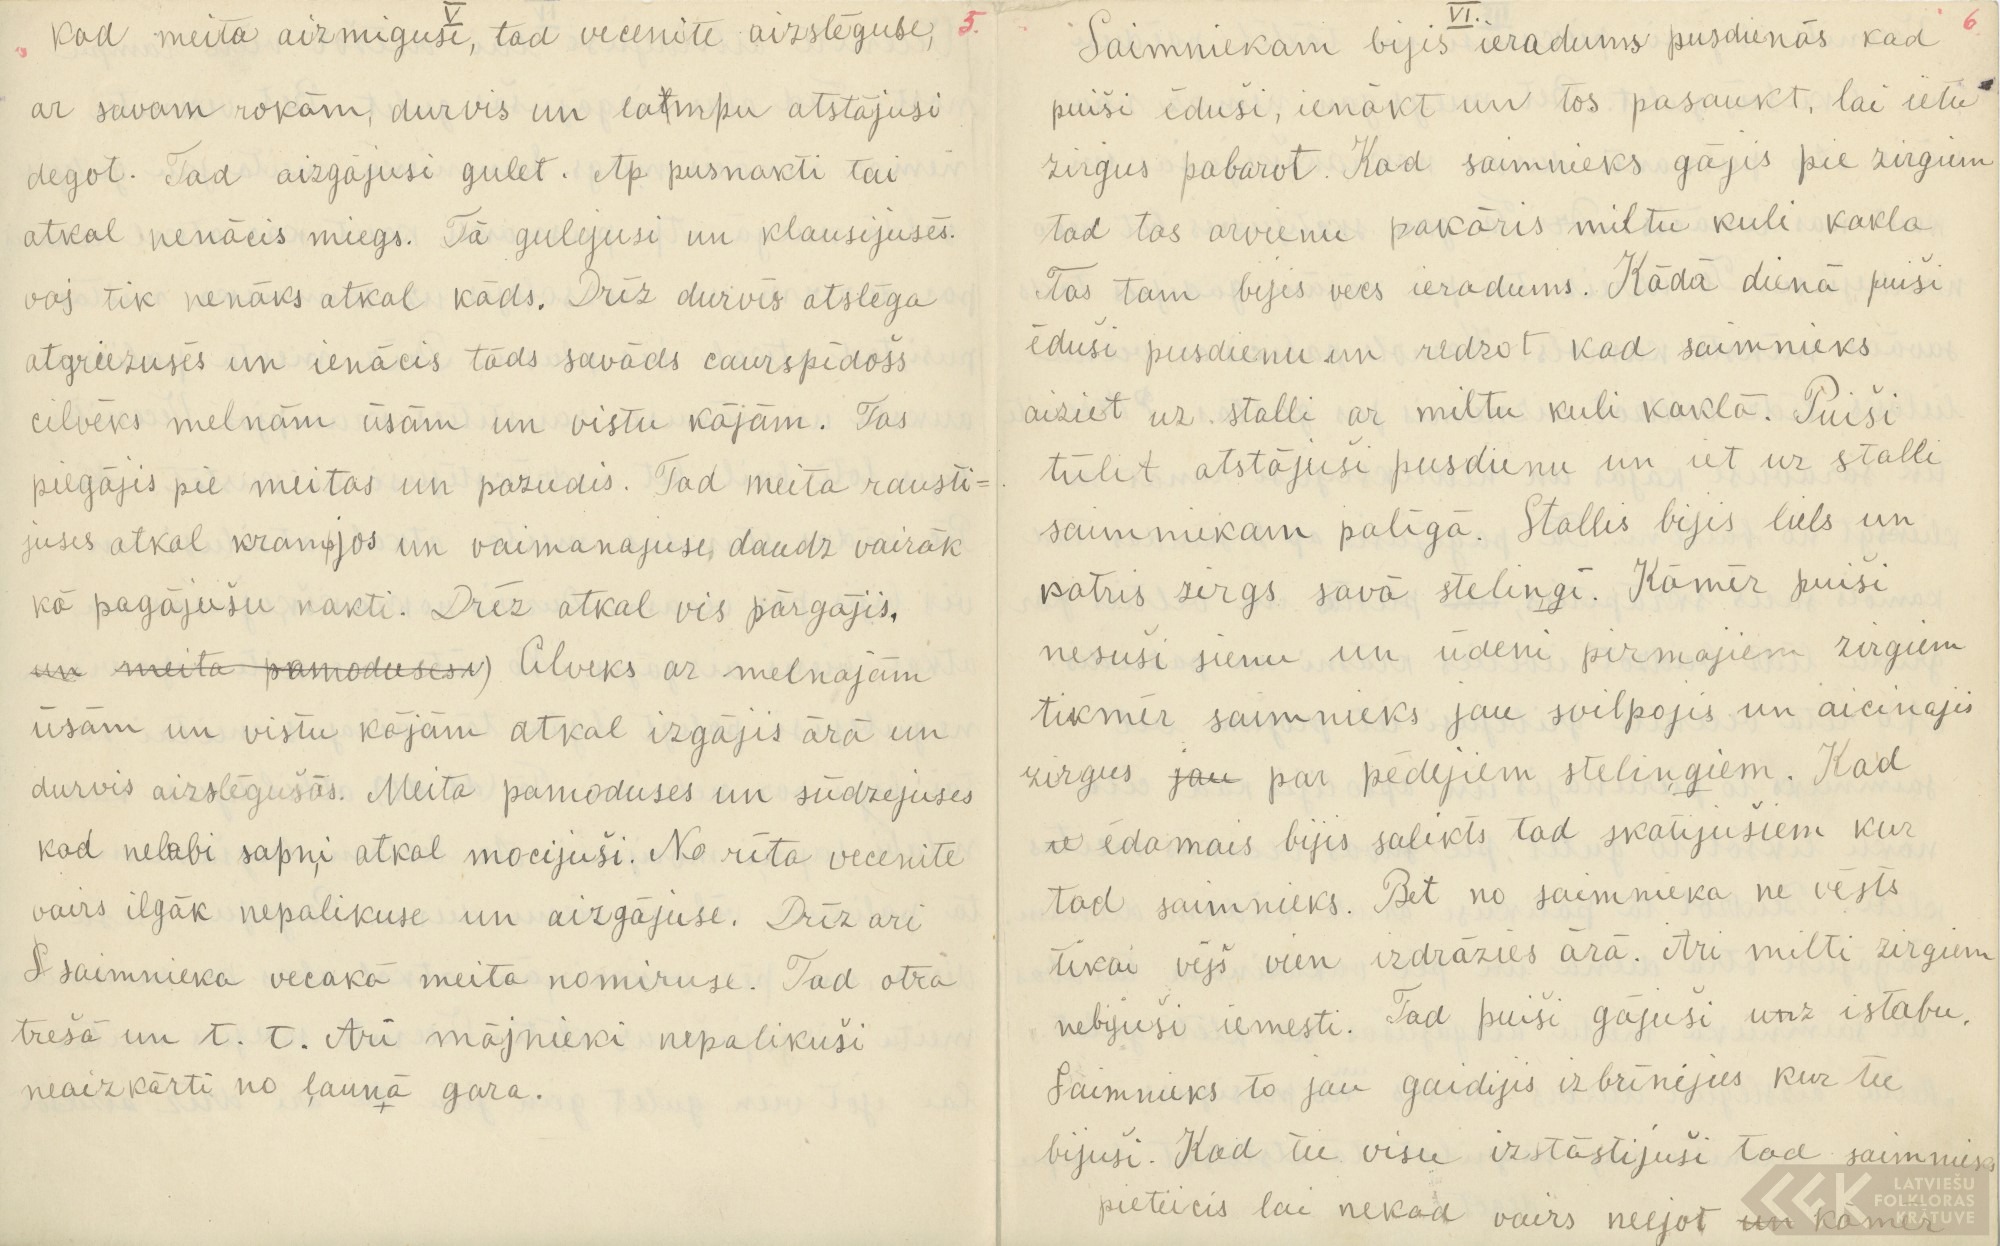 V
5.
kad meita aizmiguse, tad vecenite aizslēguse,
ar savam rokām, durvis un lampu atstājusi
degot. Tad aizgājusi gulet. Ap pusnakti tai
atkal nenācis miegs. Tā gulejusi un klausijusēs.
vaj tik nenāks atkal kāds. Drīz durvis atslēga
atgriezusēs un ienācis tāds savāds caurspīdošs
cilvēks melnām ūsām un vistu kājām. Tas
piegājis pie meitas un pazudis. Tad meita rausti=
juses atkal krampjos un vaimanajuse, daudz vairāk
kā pagājušu nakti. Drīz atkal vis pārgājis.
un meita pamodusēs Cilveks ar melnajām
ūsām un vistu kājām atkal izgājis ārā un
durvis aizslēgušās. Meita pamoduses un sūdzejuses
kad nelabi sapņi atkal mocijuši. No rīta vecenite
vairs ilgāk nepalikuse un aizgājuse. Drīz ari
saimnieka vecakā meita nomiruse. Tad otrā
trešā un t. t. Arī mājnieki nepalikuši
neaizkārti no ļaunā gara.
VI.
6
Saimniekam bijis ieradums pusdienās kad
puiši ēduši, ienākt un tos pasaukt, lai ietu
zirgus pabarot. Kad saimnieks gājis pie zirgiem
tad tas arvienu pakāris miltu kuli kakla
Tas tam bijis vecs ieradums. Kādā dienā puiši
ēduši pusdienu un redzot kad saimnieks
aiziet uz stalli ar miltu kuli kaklā. Puiši
tūlit atstājuši pusdienu un iet uz stalli
saimniekam palīgā. Stallis bijis liels un
katris zirgs savā stelinģī. Kāmēr puiši
nesuši sienu un ūdeni pirmajiem zirgiem
tikmēr saimnieks jau svilpojis un aicinajis
zirgus jau par pēdejiem stelinģiem. Kad
ēdamais bijis salikts tad skatijušiem kur
tad saimnieks. Bet no saimnieka ne vēsts
tikai vējš vien izdrāzies ārā. Ari milti zirgiem
nebijuši iemesti. Tad puiši gājuši uz istabu.
Saimnieks to jau gaidijis izbrīnējies kur tie
bijuši. Kad tie visu izstāstijuši tad saimnieks
pieteicis lai nekad vairs neejot un kāmēr
LATVIEŠU
FOLKLORAS
KRĀTUVE